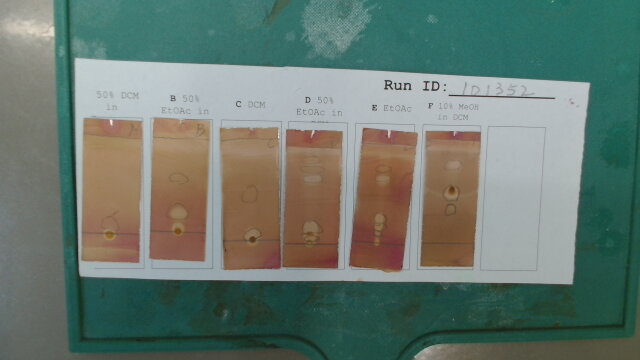 Run ID: 101352
50% DCM
in
B 50%
EtOAc in
C DCM
D 50%
EtOAc in
E EtOAc
F 10% MeOH
in DCM
B